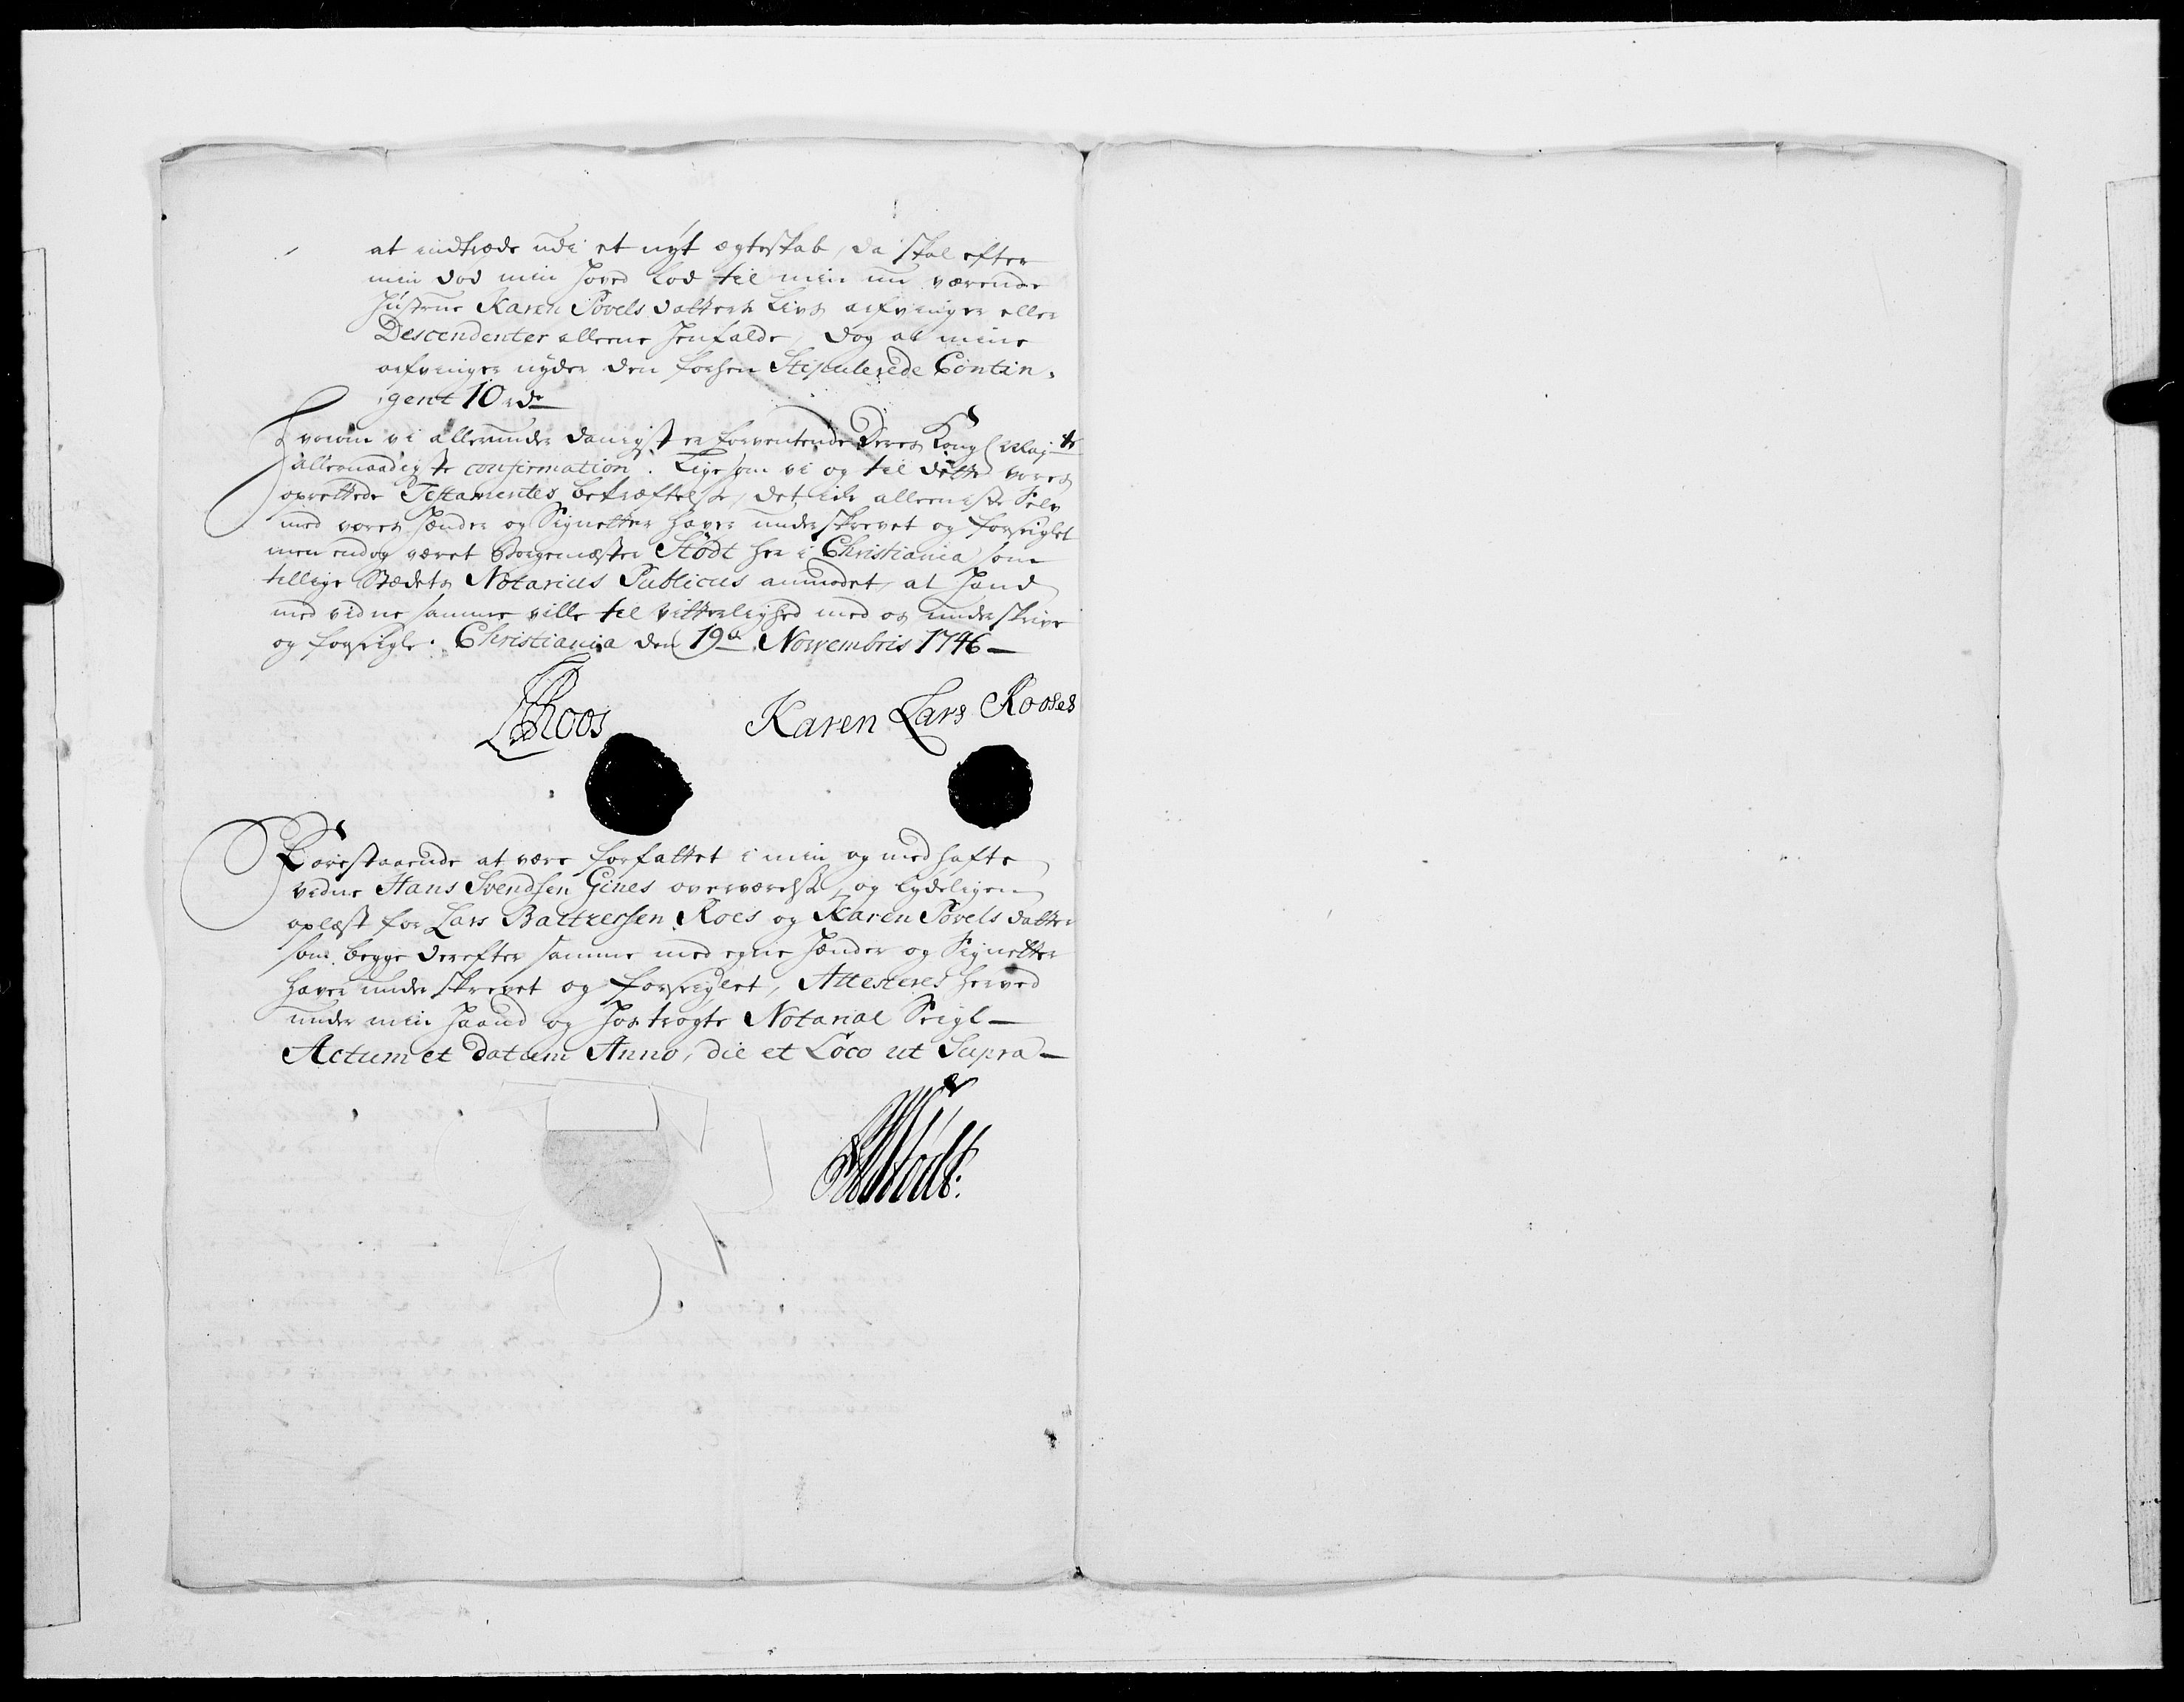 at indtræde udi et nyt ægteskab, da skal efter
min død min Hoved Lod til min nu værende
Hustrue Karen Povels datters Livs arfvinger eller
Descendenter alleene henfalde, dog at mine
arfvinger nyder den forhen Stipulerede Contin-
gent 10 rdr
Hvorom vi allerunderdanigst er forventende Deres Kongl Maj-ts
allernaadigste confirmation. Ligesom vi og til dette vores
oprettede Testamentes bekræftelse, det icke alleeniste Selv
med vores Hænder og Signetter haver underskrevet og forseiglet
men endog været Borgemæster Stödt her i Christiania som
tillige Stædets Notarius Publicus anmodet, at Hand
med vidne samme ville til Vitterlighed med os underskrive
og forseigle. Christiania den 19de Novembris 1746
LBRoos Karen Lars Rooses
Forestaaende at være forfattet i min og medhafte
vidne Hans Svendsen Gines overværelse, og lydeligen
oplæst for Lars Baltzersen Roes og Karen Povels datter
som begge derefter samme med egne Hænder og Signetter
haver underskrevet og forseiglet, Attesteres herved
under min Haand og hoströgte Notarial Seigl
Actum et datum Anno, die et Loco ut Supra
Stödt: